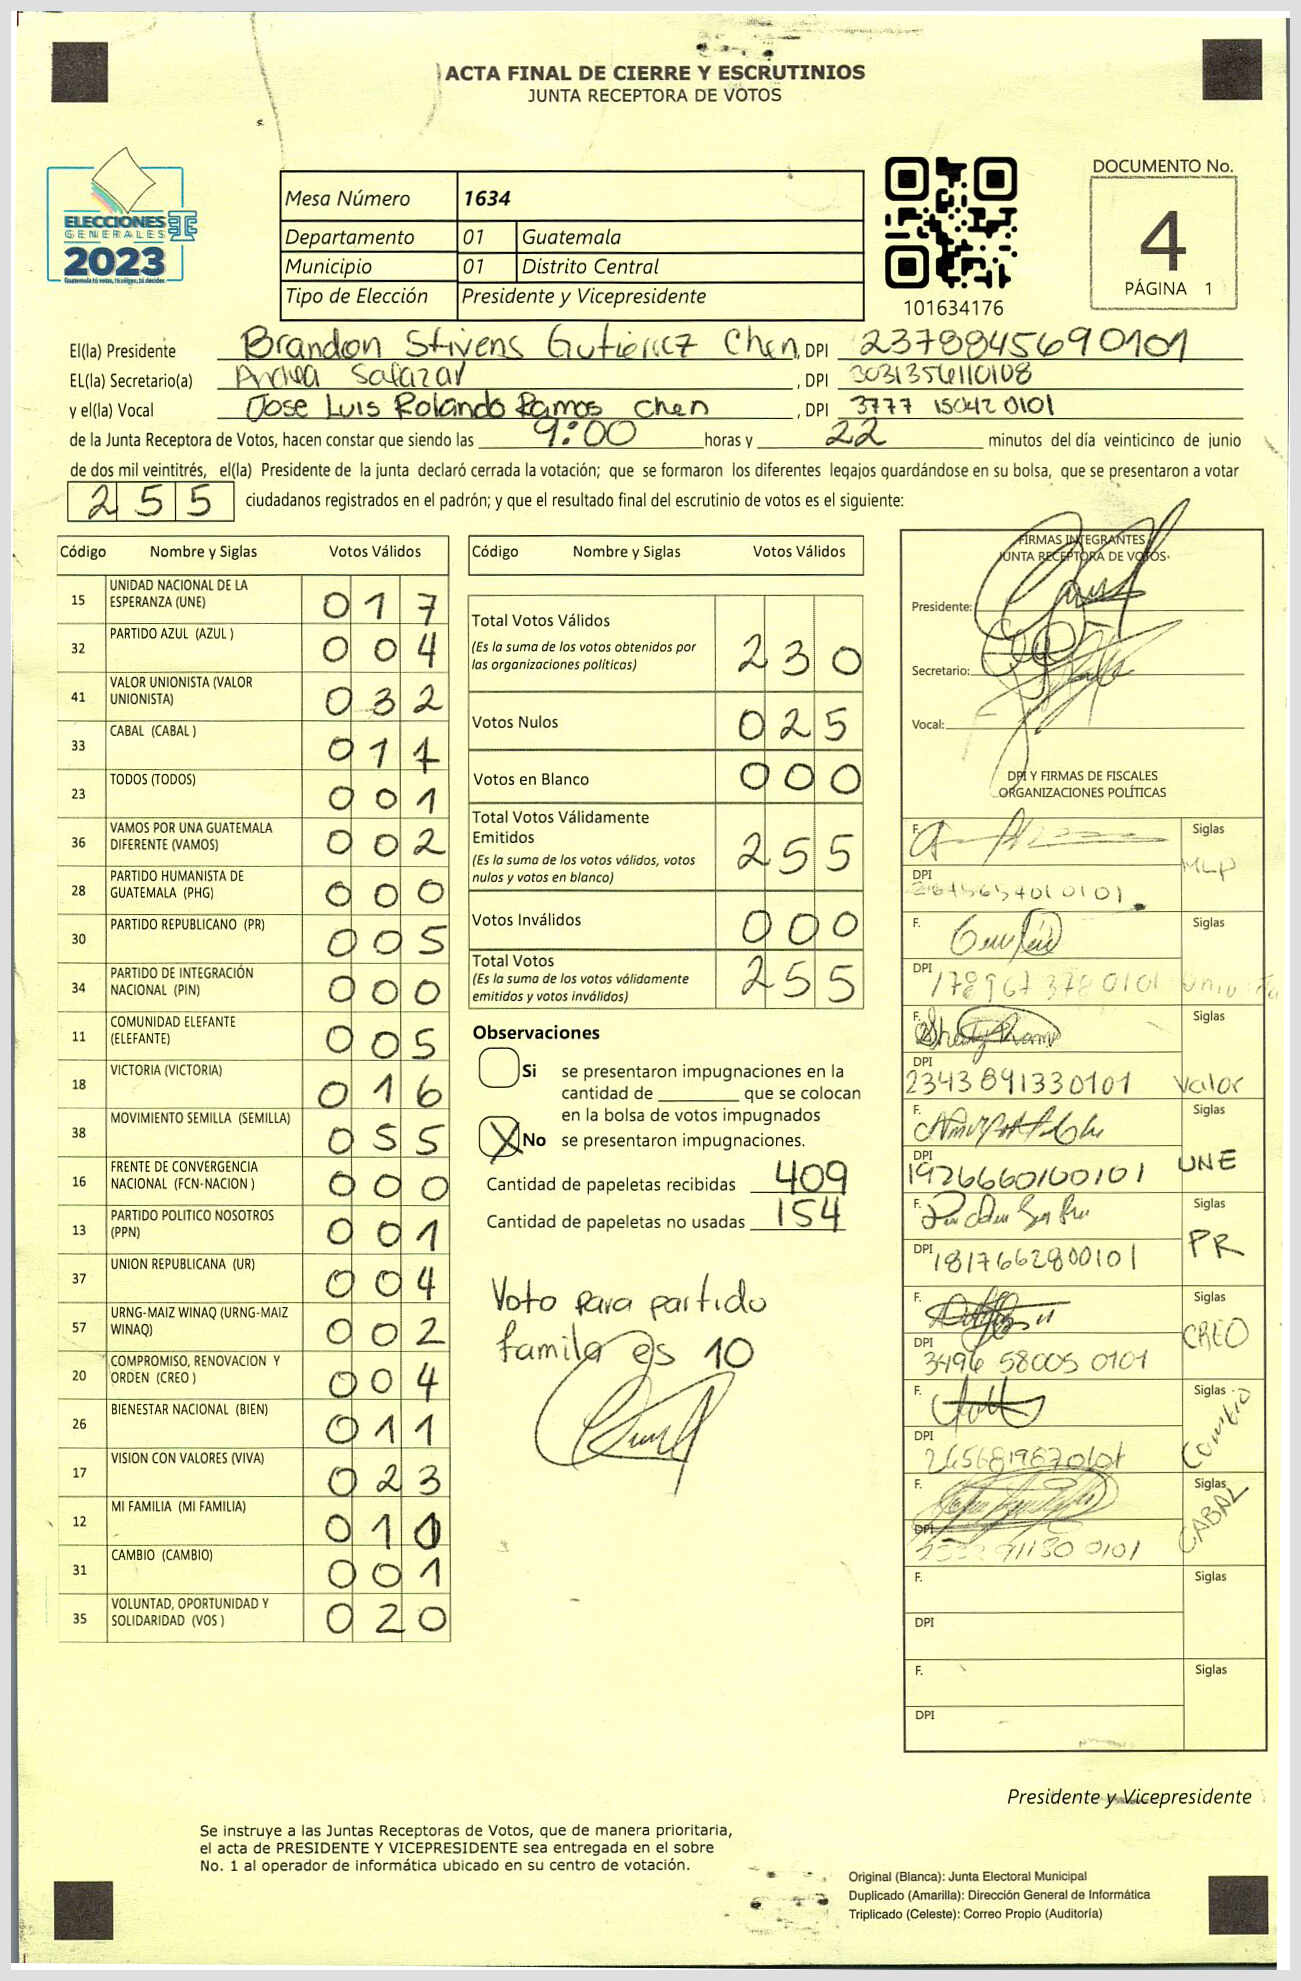 ACTA FINAL DE CIERRE Y ESCRUTINIOS
JUNTA RECEPTORA DE VOTOS
ELECCIONES
GENERALES
2023
Guatemala tú votas, tú eliges, tú decides
Mesa Número 1634
Departamento 01 Guatemala
Municipio 01 Distrito Central
Tipo de Elección Presidente y Vicepresidente
101634176
DOCUMENTO No.
4
PÁGINA 1
El(la) Presidente Brandon Stivens Gutierrez Chen, DPI 2378845690101
EL(la) Secretario(a) Andrea Salazar, DPI 3031356110108
y el(la) Vocal Jose Luis Rolando Ramos chen, DPI 3777 15042 0101
de la Junta Receptora de Votos, hacen constar que siendo las 9:00 horas y 22 minutos del día veinticinco de junio
de dos mil veintitrés, el(la) Presidente de la junta declaró cerrada la votación; que se formaron los diferentes legajos guardándose en su bolsa, que se presentaron a votar
255 ciudadanos registrados en el padrón; y que el resultado final del escrutinio de votos es el siguiente:
Código Nombre y Siglas Votos Válidos
15 UNIDAD NACIONAL DE LA ESPERANZA (UNE) 017
32 PARTIDO AZUL (AZUL ) 004
41 VALOR UNIONISTA (VALOR UNIONISTA) 032
33 CABAL (CABAL ) 017
23 TODOS (TODOS) 001
36 VAMOS POR UNA GUATEMALA DIFERENTE (VAMOS) 002
28 PARTIDO HUMANISTA DE GUATEMALA (PHG) 000
30 PARTIDO REPUBLICANO (PR) 005
34 PARTIDO DE INTEGRACIÓN NACIONAL (PIN) 000
11 COMUNIDAD ELEFANTE (ELEFANTE) 005
18 VICTORIA (VICTORIA) 016
38 MOVIMIENTO SEMILLA (SEMILLA) 055
16 FRENTE DE CONVERGENCIA NACIONAL (FCN-NACION ) 000
13 PARTIDO POLITICO NOSOTROS (PPN) 001
37 UNION REPUBLICANA (UR) 004
57 URNG-MAIZ WINAQ (URNG-MAIZ WINAQ) 002
20 COMPROMISO, RENOVACION Y ORDEN (CREO ) 004
26 BIENESTAR NACIONAL (BIEN) 011
17 VISION CON VALORES (VIVA) 023
12 MI FAMILIA (MI FAMILIA) 010
31 CAMBIO (CAMBIO) 001
35 VOLUNTAD, OPORTUNIDAD Y SOLIDARIDAD (VOS ) 020
Código Nombre y Siglas Votos Válidos
Total Votos Válidos 230
(Es la suma de los votos obtenidos por
las organizaciones políticas)
Votos Nulos 025
Votos en Blanco 000
Total Votos Válidamente
Emitidos 255
(Es la suma de los votos válidos, votos
nulos y votos en blanco)
Votos Inválidos 000
Total Votos 255
(Es la suma de los votos válidamente
emitidos y votos inválidos)
Observaciones
Si se presentaron impugnaciones en la
cantidad de ________ que se colocan
en la bolsa de votos impugnados
X No se presentaron impugnaciones.
Cantidad de papeletas recibidas 409
Cantidad de papeletas no usadas 154
Voto para partido
familia es 10
FIRMAS INTEGRANTES
JUNTA RECEPTORA DE VOTOS
Presidente:
Secretario:
Vocal:
DPI Y FIRMAS DE FISCALES
ORGANIZACIONES POLÍTICAS
F. Siglas
DPI MLP
F. Siglas
DPI 178967378 0101
F. Siglas
DPI 2343891330101 Valor
F. Siglas
DPI 1926660160101 UNE
F. Siglas
DPI 1817662800101 PR
F. Siglas
DPI 3496 58005 0101 CREO
F. Siglas
DPI Cambio
F. Siglas
DPI CABAL
F. Siglas
DPI
F. Siglas
DPI
Presidente y Vicepresidente
Se instruye a las Juntas Receptoras de Votos, que de manera prioritaria,
el acta de PRESIDENTE Y VICEPRESIDENTE sea entregada en el sobre
No. 1 al operador de informática ubicado en su centro de votación.
Original (Blanca): Junta Electoral Municipal
Duplicado (Amarilla): Dirección General de Informática
Triplicado (Celeste): Correo Propio (Auditoría)